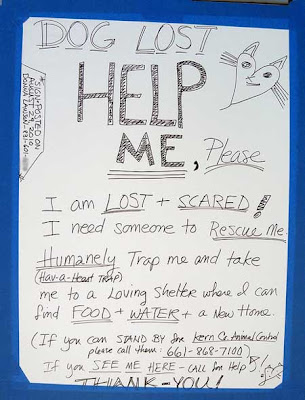 DOG LOST
HELP
ME, Please
SIGN POSTED ON
AUGUST 29, 2010
I am LOST + SCARED!
I need someone to Rescue me.
Humanely Trap me and take
(Hav-a-Heart Trap)
me to a Loving Shelter where I can
find FOOD + WATER + a New Home.
(If you can STAND BY for Kern Co. Animal Control
please call them: 661-868-7100)
If you SEE ME HERE - CALL for Help!
THANK-YOU!